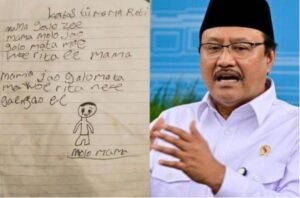 kertas tii mama Reti
mama galo zee
mama molo Jao
galo mata mae
woe rita ee mama
mama jao galo mata
mae woe rita ne'e
gae ngao ee
molo mama